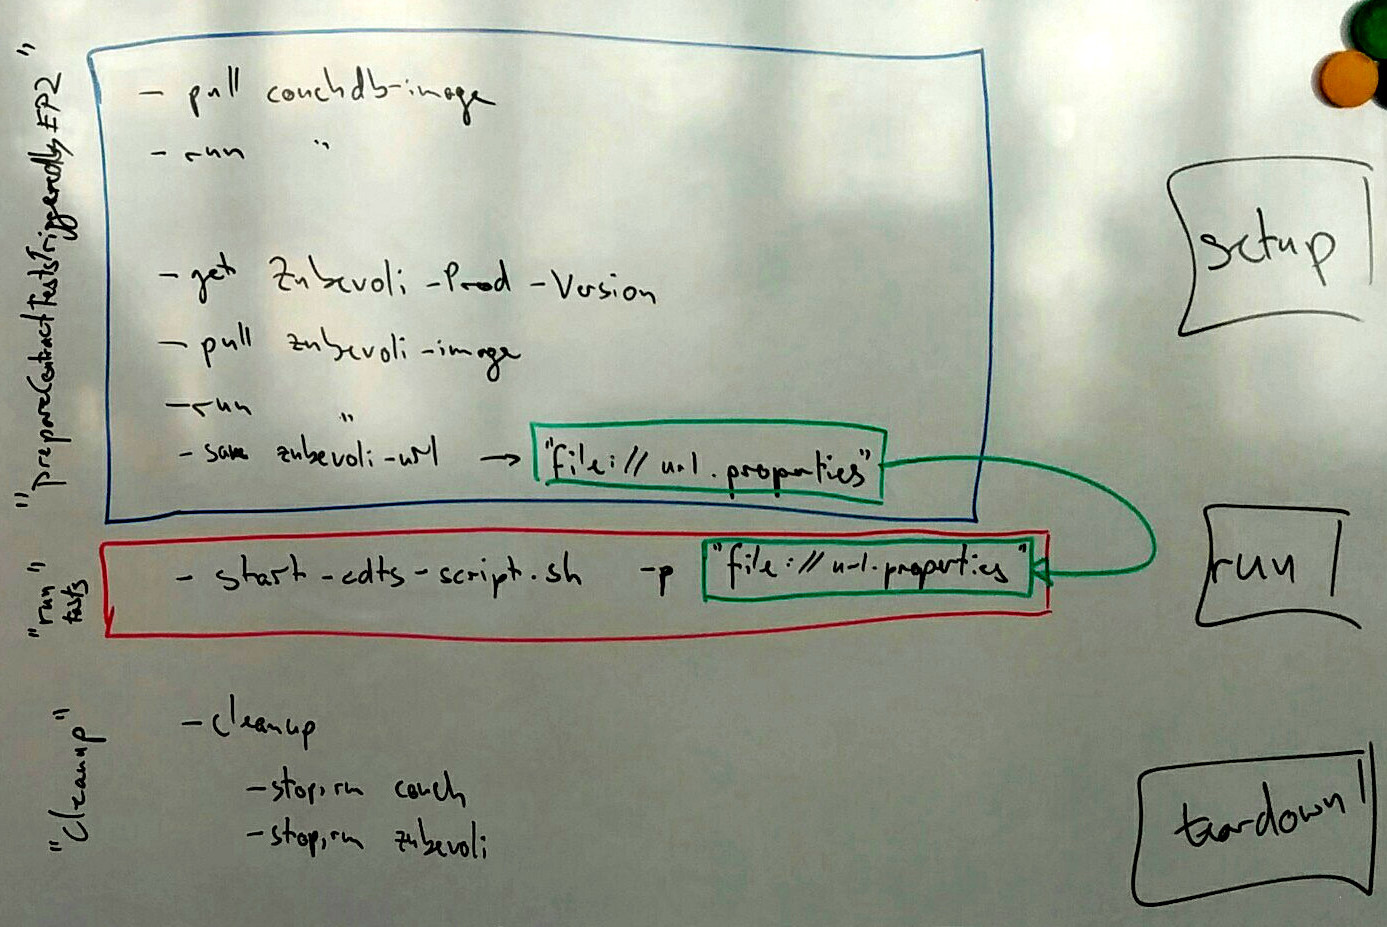 "prepareContractTestsTriggeredByEP2"
- pull couchdb-image
- run "
- get Zubevoli-Prod-Version
- pull zubevoli-image
- run "
- save zubevoli-url → "file://url.properties"
setup
"run tests"
- start-cdts-script.sh -p "file://url.properties"
run
"cleanup"
- cleanup
- stop, rm couch
- stop, rm zubevoli
teardown